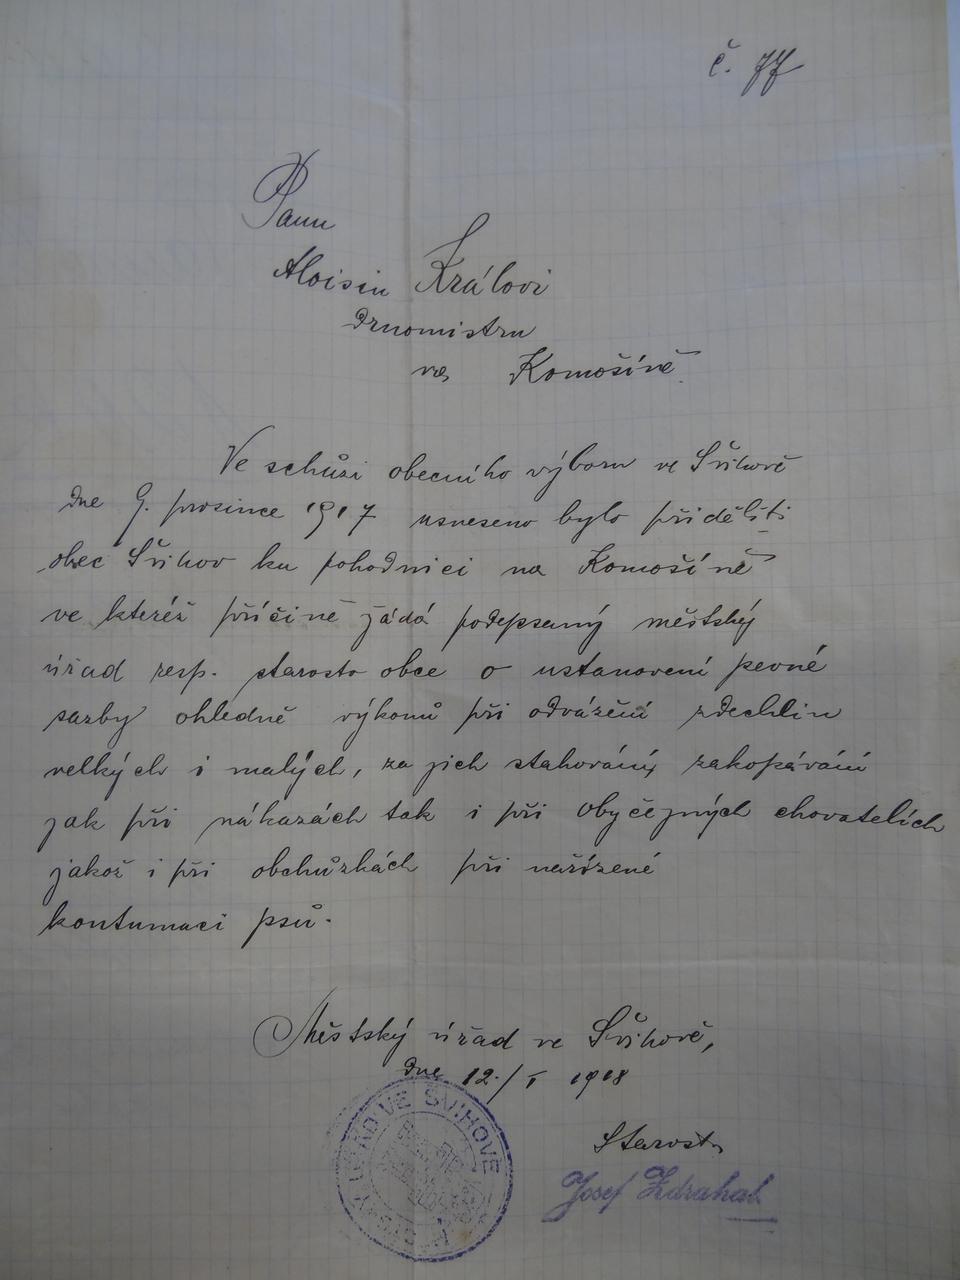 č. 77
Panu
Aloisiu Královi
drnomistru
na Komošíně
Ve schůzi obecního výboru ve Švihově
dne 9. prosince 1917 usneseno bylo přiděliti
obec Švihov ku pohodnici na Komošíně
ve kteréž příčině žádá podepsaný městský
úřad resp. starosta obce o ustanovení pevné
sazby ohledně výkonů při odvážení zdechlin
velkých i malých, za jich stahování, zakopávání
jak při nákazách tak i při obyčejných chovatelích
jakož i při obchůzkách při nařízené
kontumaci psů.
Městský úřad ve Švihově,
dne 12./I 1918
MĚSTSKÝ ÚŘAD VE ŠVIHOVĚ
Starosta
Josef Zdrahal